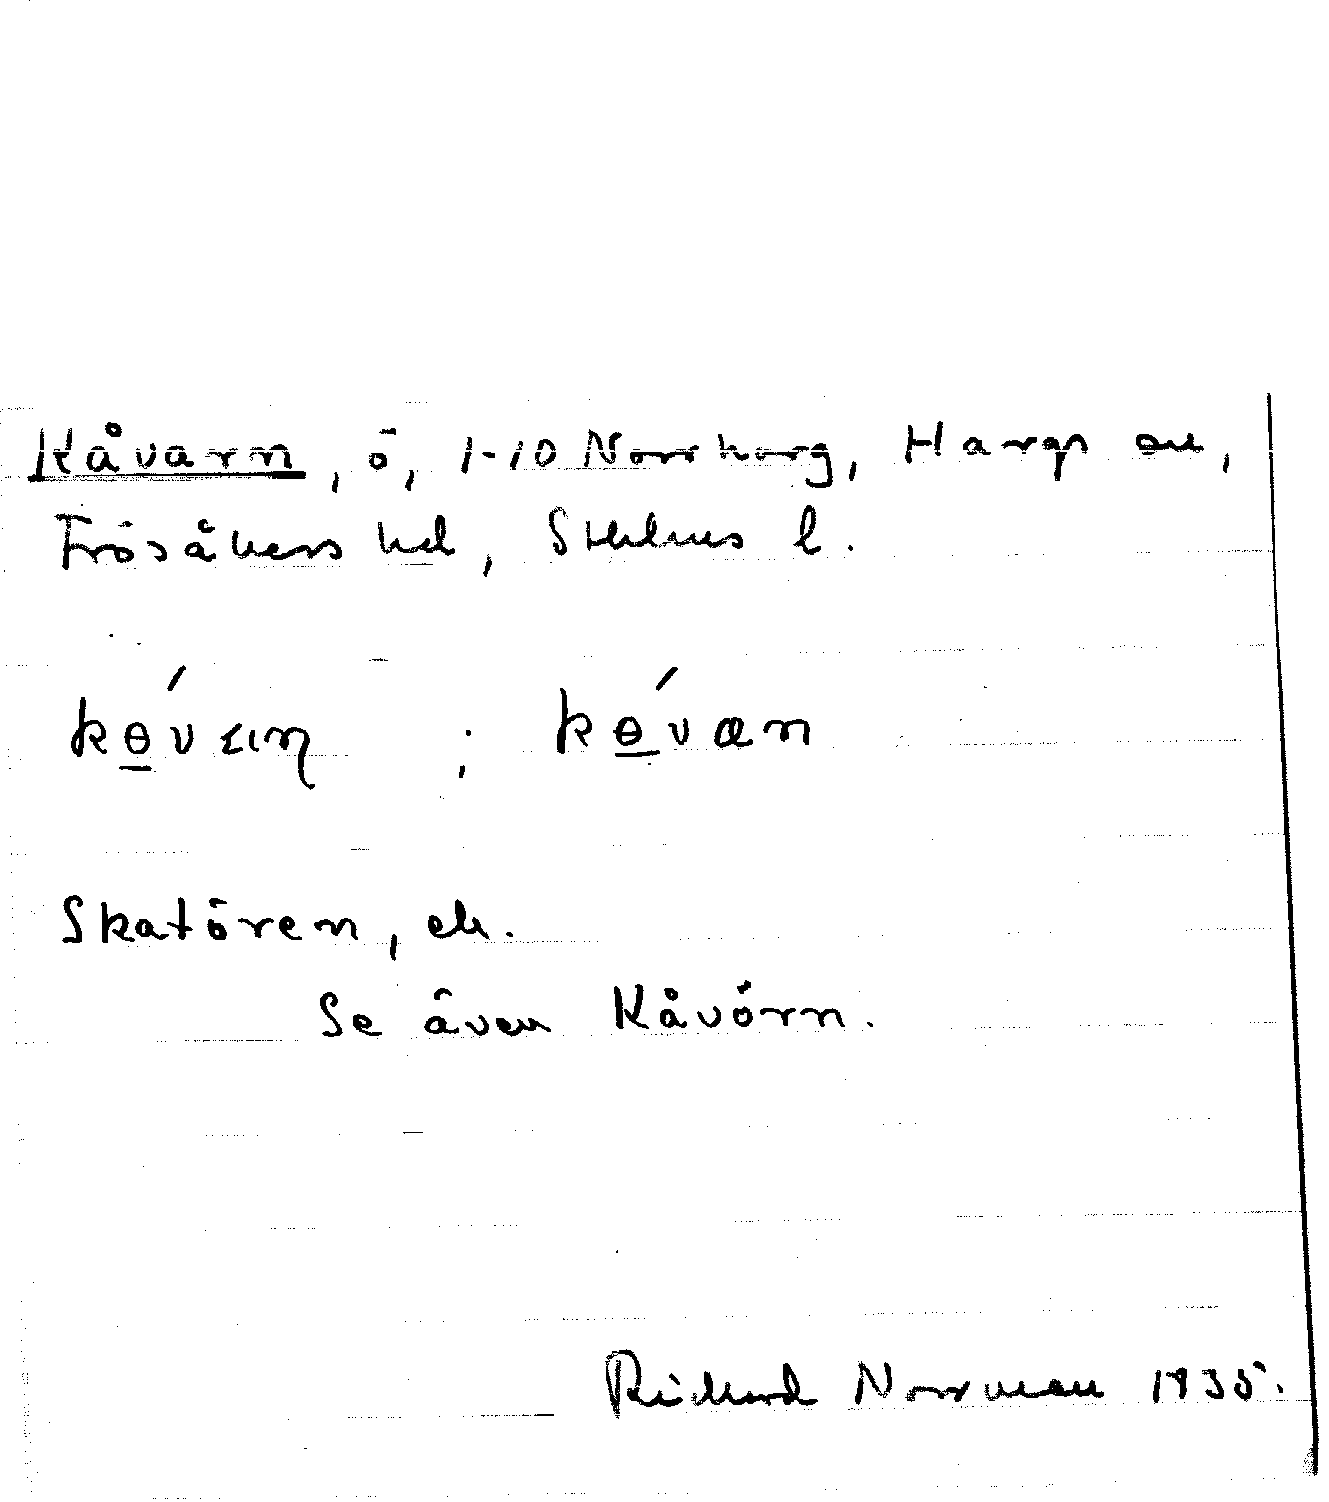 Kåvarn, ö, 1-10 Norrharg, Hargs sn,
Frösåkers hd, Sthlms l.
kɵ́van ; kɵ́van
Skatören, ek.
Se även Kåvörn.
Richard Norrman 1935.